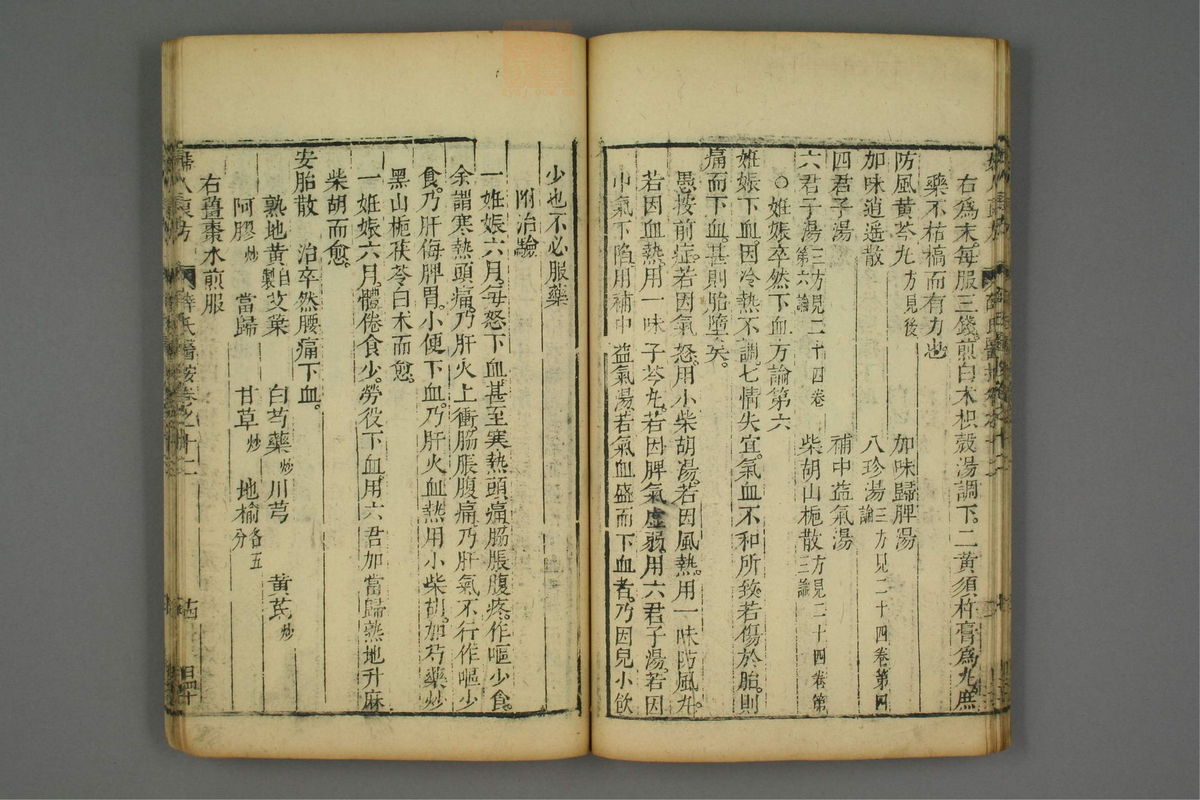 右為末每服三錢煎白木枳殼湯調下二黃須杵膏為丸庶
藥不枯槁而有力也
防風黃芩丸方見後 加味歸脾湯
加味逍遥散 八珍湯三方見二十四卷第四論
四君子湯 補中益氣湯
六君子湯三方見二十四卷第六論 柴胡山梔散方見二十四卷第三論
○姙娠卒然下血方論第六
姙娠下血因冷熱不調七情失宜氣血不和所致若傷於胎則
痛而下血甚則胎墮矣。
愚按前症若因氣怒用小柴胡湯若因風熱用一味防風丸
若因血熱用一味子芩丸若因脾氣虛弱用六君子湯若因
中氣下陷用補中益氣湯若氣血盛而下血者乃因兒小飲
少也不必服藥
附治驗
一姙娠六月每怒下血甚至寒熱頭痛脇脹腹疼作嘔少食。
余謂寒熱頭痛乃肝火上衝脇脹腹痛乃肝氣不行作嘔少
食乃肝侮脾胃小便下血乃肝火血熱用小柴胡加芍藥炒
黑山梔茯苓白木而愈。
一姙娠六月體倦食少勞役下血用六君加當歸熟地升麻
柴胡而愈。
安胎散 治卒然腰痛下血。
熟地黃自製 艾葉 白芍藥炒 川芎 黃芪炒
阿膠炒 當歸 甘草炒 地榆各五分
右薑棗水煎服
婦人良方 薛氏醫按卷之十二